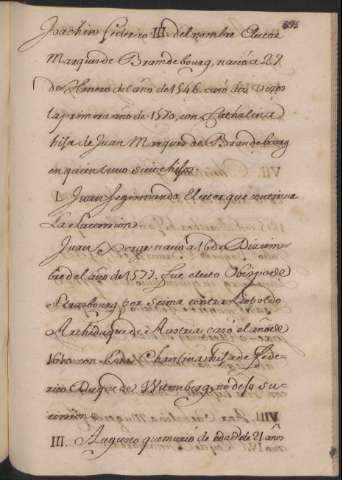 Joachin Federico III. del nombre Elector
Marques de Brandebourg, nació a 27
de Henero del año de 1546. casó dos veces
la primera año de 1570, con Cathalina
hija de Juan Marques de Brandeburg
en quien tuvo siete hijos
I. Juan Segismundo, Elector que continua
La Succession.
Juan Jorge nació a 16 de Diciem-
bre del año de 1577. fue electo Obispo de
Strasbourg por contra Leopoldo
Archiduque de Austria, casó el año de
1610 con Christina, hija de Fede-
rico Duque de Witemberg, no dejó su-
cession
III. Augusto que murió de edad de 21 años